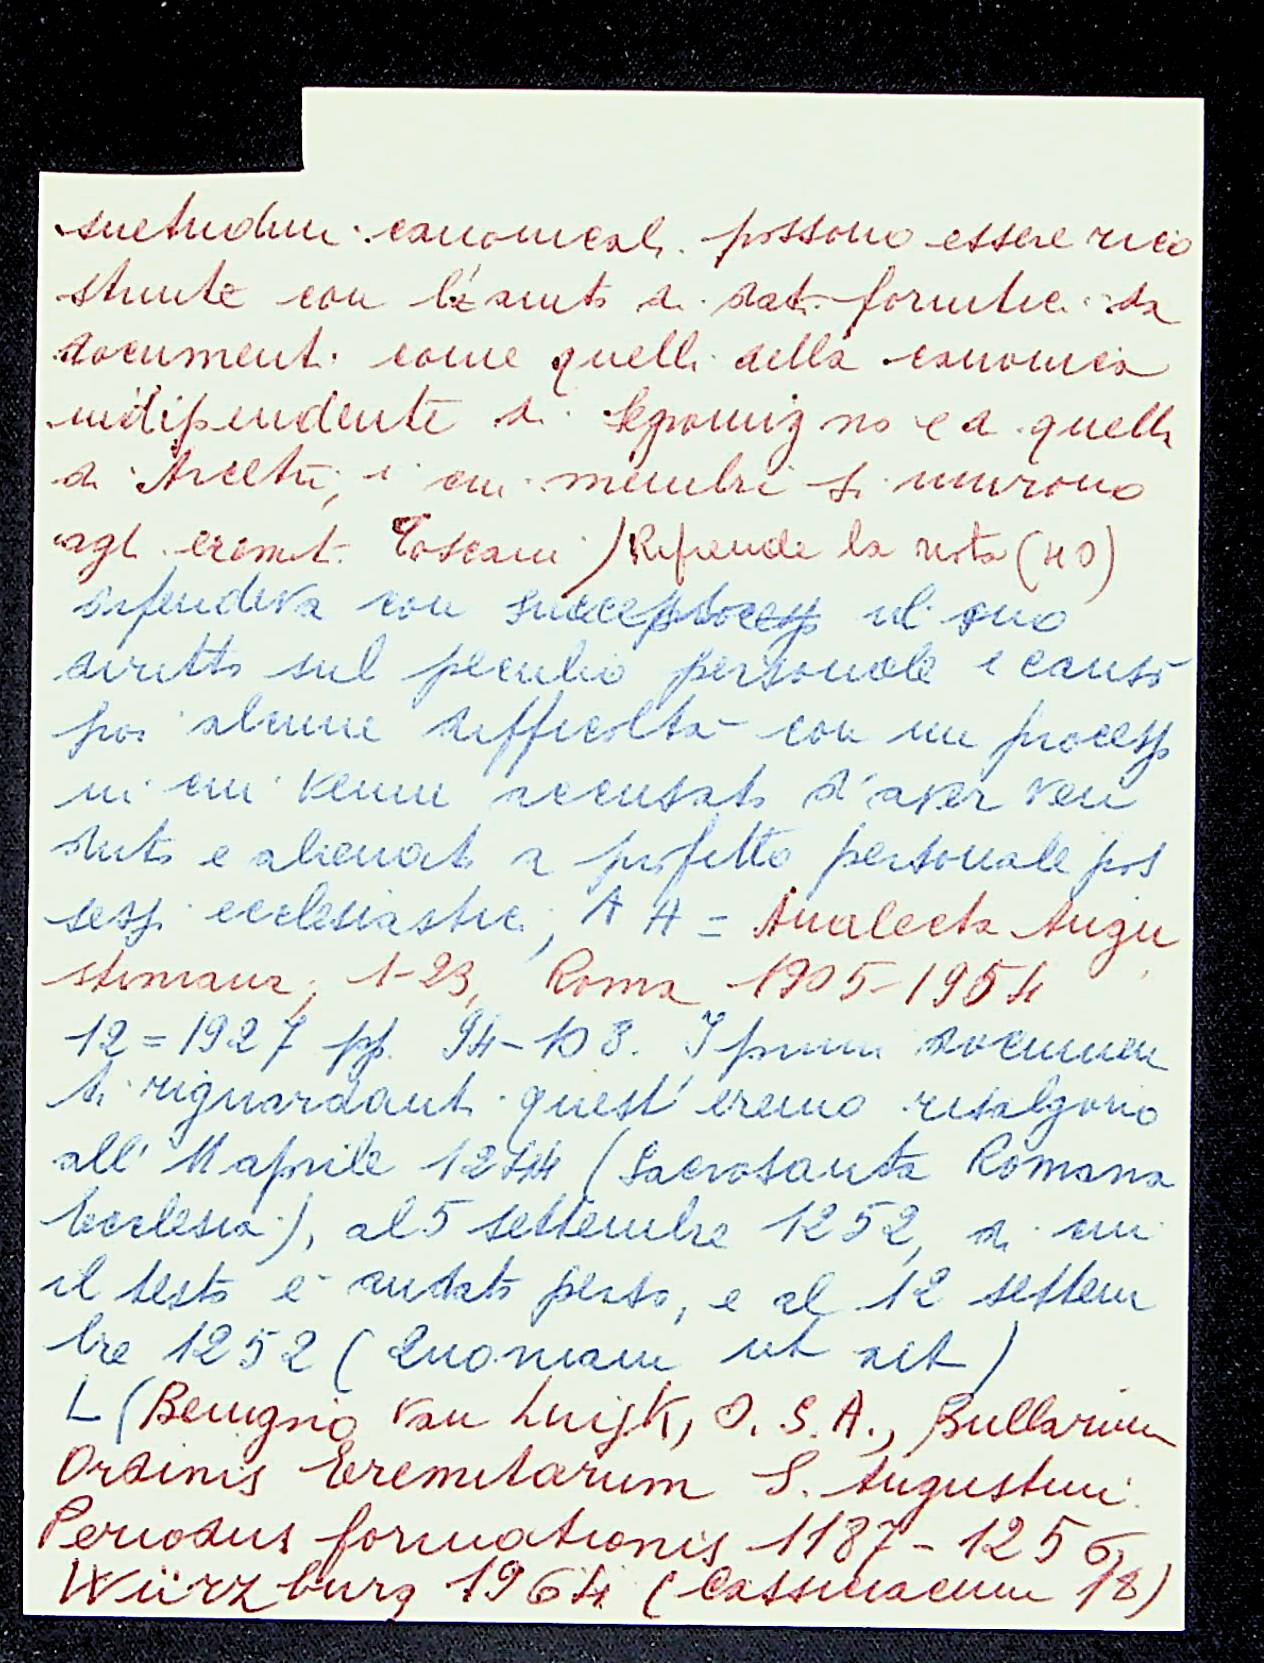 suetudini canonicali possono essere rico
struite con l'aiuto di dati forniteci da
documenti come quelli della canonica
indipendente di Segromigno e da quelli
di Arcetri, i cui membri si unirono
agli eremiti Toscani) Riprende la nota (40)
difendeva con successo il suo
diritto sul peculio personale e causò
poi alcune difficoltà con un processo
in cui venne accusato d'aver ven
duto e alienato a profitto personale pos
sessi ecclesiastici, A A = Analecta Augu
stiniana, 1-23, Roma 1905-1954
12=1927 pp. 94-108. I primi documen
ti riguardanti quest'eremo risalgono
all' 11 aprile 1244 (Sacrosanta Romana
Ecclesia), al 5 settembre 1252, di cui
il testo è andato perso, e al 12 settem
bre 1252 (Quoniam ut ait)
L (Benigno van Luijk, O. S. A., Bullarium
Ordinis Eremitarum S. Augustini
Periodus formationis 1187-1256,
Würzburg 1964 (Cassiciacum 18)